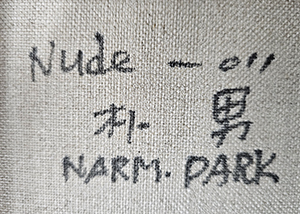 Nude - oil
朴 男
NARM. PARK